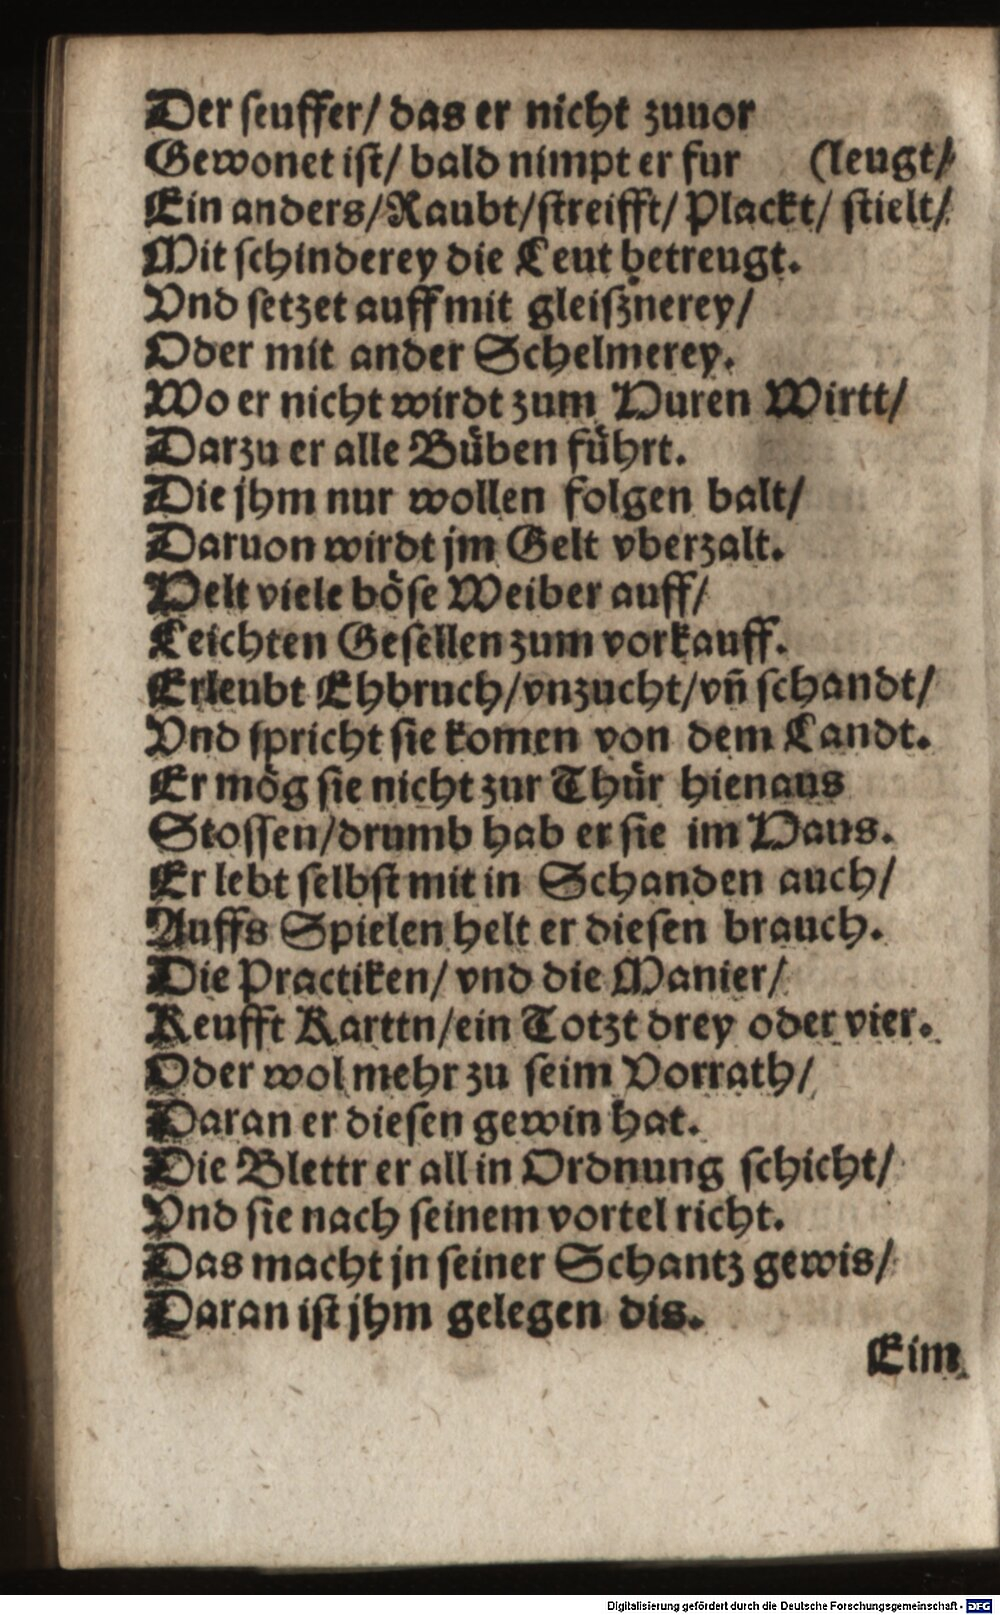 Der seuffer/ das er nicht zuuor
Gewonet ist/ bald nimpt er fur (leugt/
Ein anders/Raubt/streifft/ Plackt/ stielt/
Mit schinderey die Leut betreugt.
Vnd setzet auff mit gleisznerey/
Oder mit ander Schelmerey.
Wo er nicht wirdt zum Huren Wirtt/
Darzu er alle Büben führt.
Die jhm nur wollen folgen balt/
Daruon wirdt jm Gelt vberzalt.
Helt viele böse Weiber auff/
Leichten Gesellen zum vorkauff.
Erleubt Ehbruch/vnzucht/vñ schandt/
Vnd spricht sie komen von dem Landt.
Er mög sie nicht zur Thür hienaus
Stossen/drumb hab er sie im Haus.
Er lebt selbst mit in Schanden auch/
Auffs Spielen helt er diesen brauch.
Die Practiken/ vnd die Manier/
Keufft Karttn/ein Totzt drey oder vier.
Oder wol mehr zu seim Vorrath/
Daran er diesen gewin hat.
Die Blettr er all in Ordnung schicht/
Vnd sie nach seinem vortel richt.
Das macht jn seiner Schantz gewis/
Daran ist jhm gelegen dis.
Eim
Digitalisierung gefördert durch die Deutsche Forschungsgemeinschaft - DFG